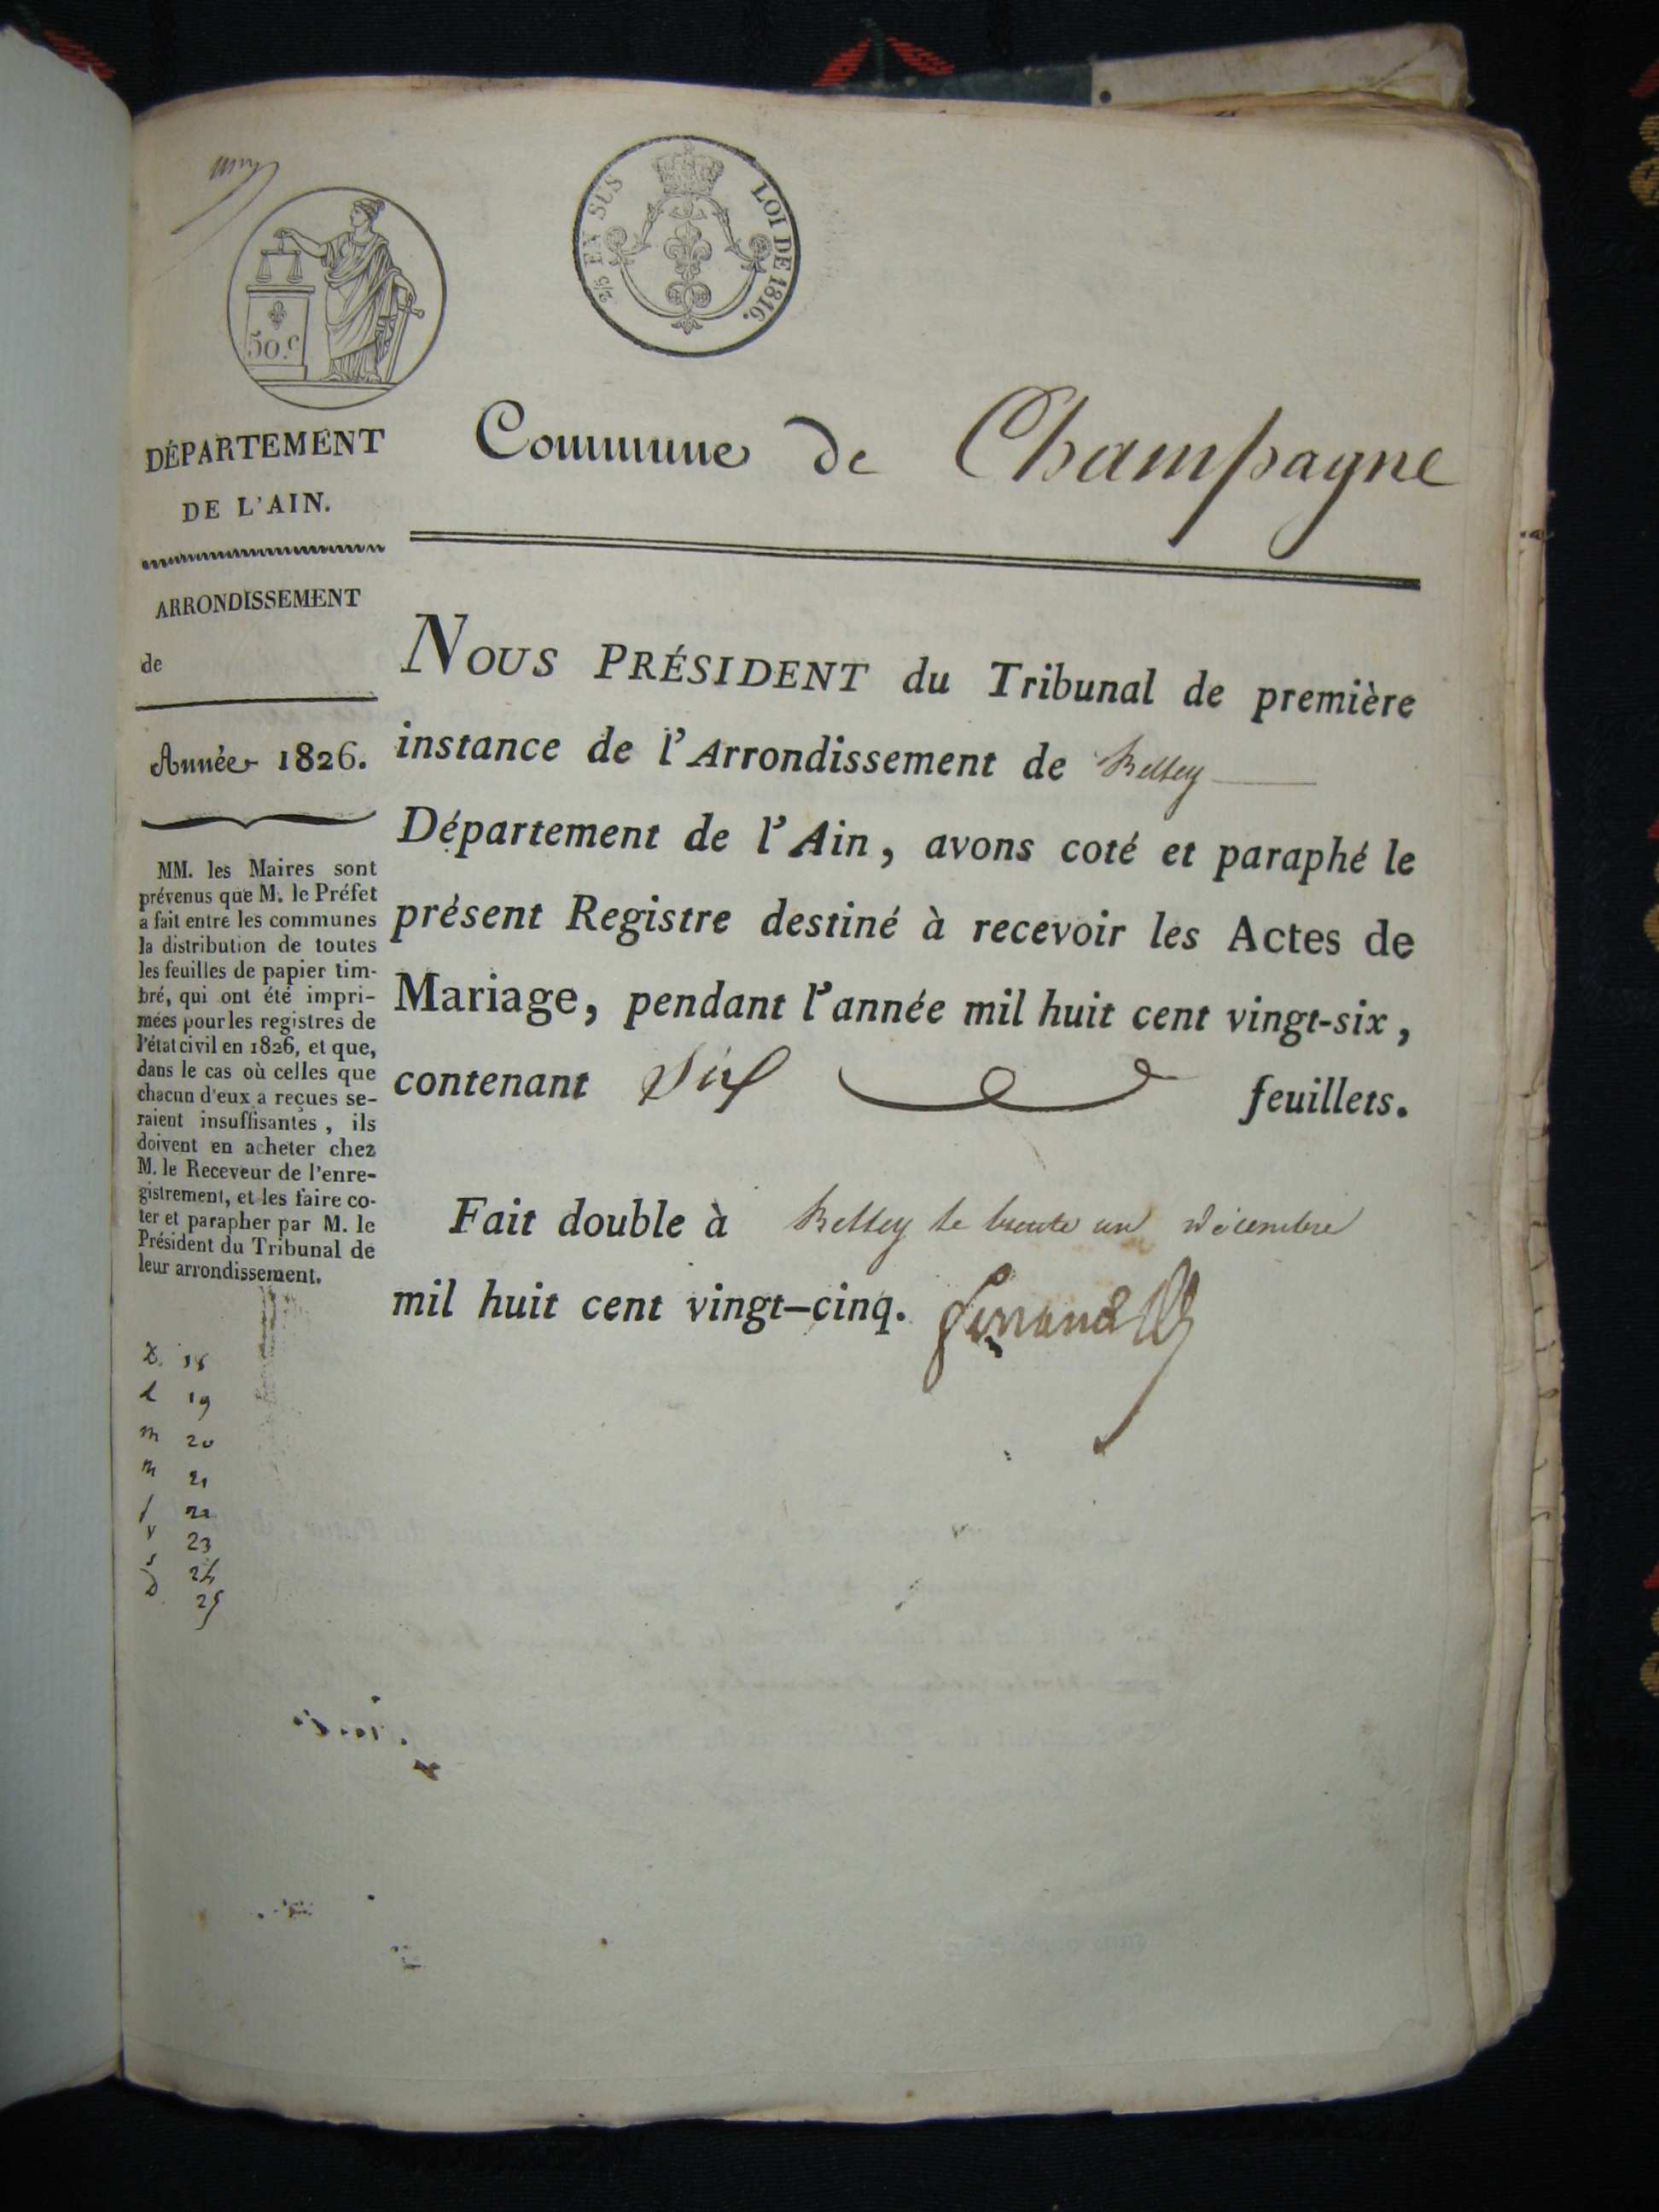 2/5 EN SUS LOI DE 1816.
50.c
DÉPARTEMENT
DE L'AIN.
ARRONDISSEMENT
de
Année 1826.
MM. les Maires sont
prévenus que M. le Préfet
a fait entre les communes
la distribution de toutes
les feuilles de papier tim-
bré, qui ont été impri-
mées pour les registres de
l'état civil en 1826, et que,
dans le cas où celles que
chacun d'eux a reçues se-
raient insuffisantes, ils
doivent en acheter chez
M. le Receveur de l'enre-
gistrement, et les faire co-
ter et parapher par M. le
Président du Tribunal de
leur arrondissement.
D. 18
l 19
m 20
m 21
j 22
v 23
s 24
D. 25
Commune de Champagne
NOUS PRÉSIDENT du Tribunal de première
instance de l'Arrondissement de Belley
Département de l'Ain, avons coté et paraphé le
présent Registre destiné à recevoir les Actes de
Mariage, pendant l'année mil huit cent vingt-six,
contenant Six feuillets.
Fait double à Belley le trente un décembre
mil huit cent vingt-cinq.